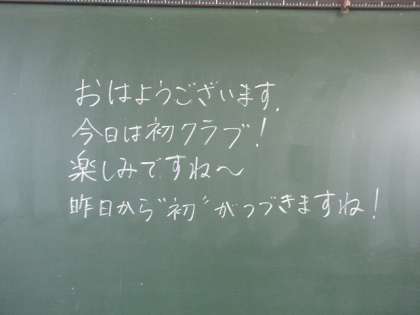 おはようございます.
今日は初クラブ!
楽しみですね〜
昨日から"初"がつづきますね!